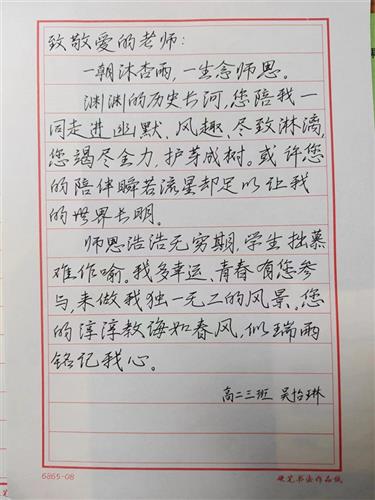 致敬爱的老师：
一朝沐杏雨，一生念师恩。
渊渊的历史长河，您陪我一
同走进幽默、风趣、尽致淋漓，
您竭尽全力，护芽成树。或许您
的陪伴瞬若流星却足以让我
的世界长明。
师恩浩浩无穷期，学生拙慕
难作喻。我多幸运、青春有您参
与，来做我独一无二的风景。您
的淳淳教诲如春风，似瑞雨
铭记我心。
高二三班 吴怡琳
6865-08
硬笔书法作品纸